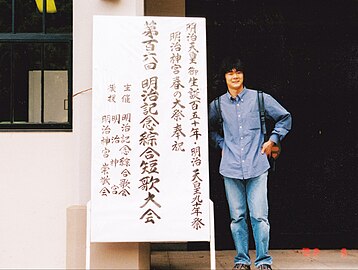 明治天皇御生誕百五十年 明治天皇九十年祭
明治神宮春の大祭奉祝
明治記念綜合短歌大会
主催 明治記念綜合歌会
明治神宮
後援 明治神宮崇敬会